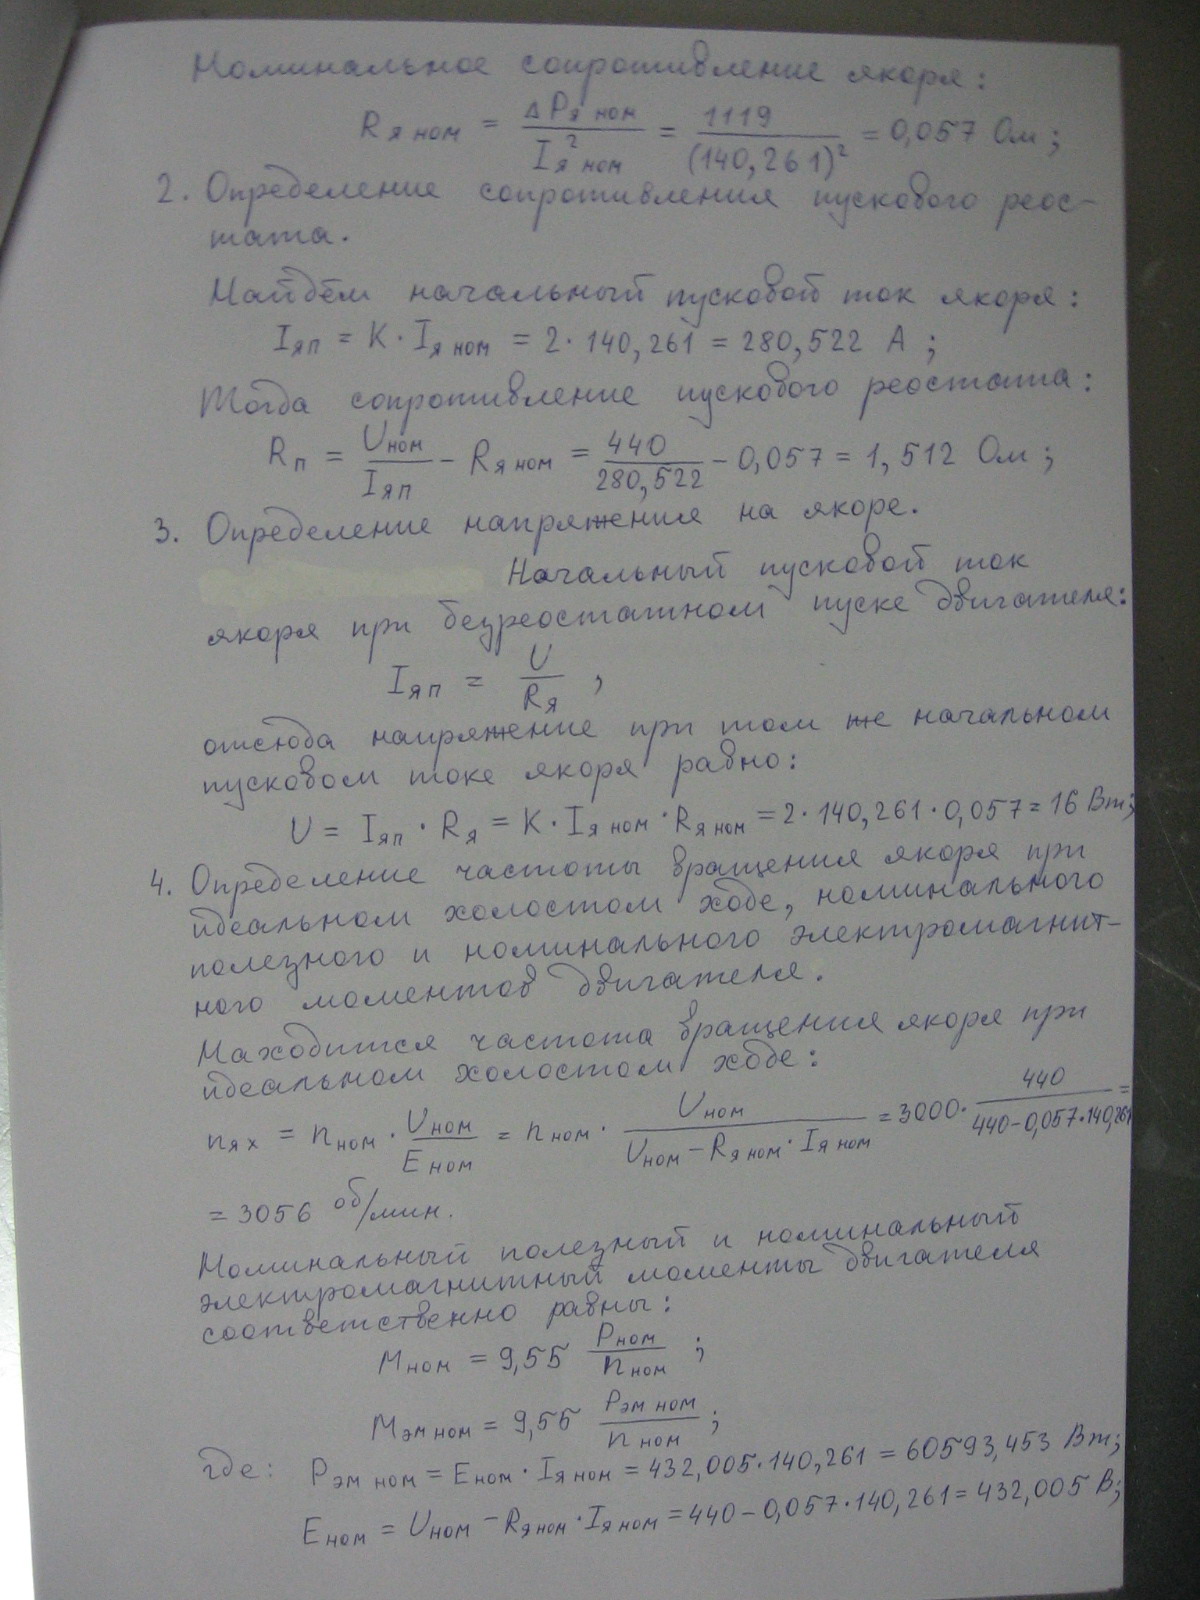 Номинальное сопротивление якоря:
Rя ном = ΔPя ном / Iя ном² = 1119 / (140,261)² = 0,057 Ом;
2. Определение сопротивления пускового реос-
тата.
Найдём начальный пусковой ток якоря:
Iяп = K · Iя ном = 2 · 140,261 = 280,522 А;
Тогда сопротивление пускового реостата:
Rп = Uном / Iяп − Rя ном = 440 / 280,522 − 0,057 = 1,512 Ом;
3. Определение напряжения на якоре.
Начальный пусковой ток
якоря при безреостатном пуске двигателя:
Iяп = U / Rя ,
отсюда напряжение при том же начальном
пусковом токе якоря равно:
U = Iяп · Rя = K · Iя ном · Rя ном = 2 · 140,261 · 0,057 = 16 Вт;
4. Определение частоты вращения якоря при
идеальном холостом ходе, номинального
полезного и номинального электромагнит-
ного моментов двигателя.
Находится частота вращения якоря при
идеальном холостом ходе:
nях = nном · Uном / Eном = nном · Uном / (Uном − Rя ном · Iя ном) = 3000 · 440 / (440 − 0,057 · 140,261) =
= 3056 об/мин.
Номинальный полезный и номинальный
электромагнитный моменты двигателя
соответственно равны:
Mном = 9,55 Pном / nном ;
Mэм ном = 9,55 Pэм ном / nном ;
где: Pэм ном = Eном · Iя ном = 432,005 · 140,261 = 60593,453 Вт;
Eном = Uном − Rя ном · Iя ном = 440 − 0,057 · 140,261 = 432,005 В;